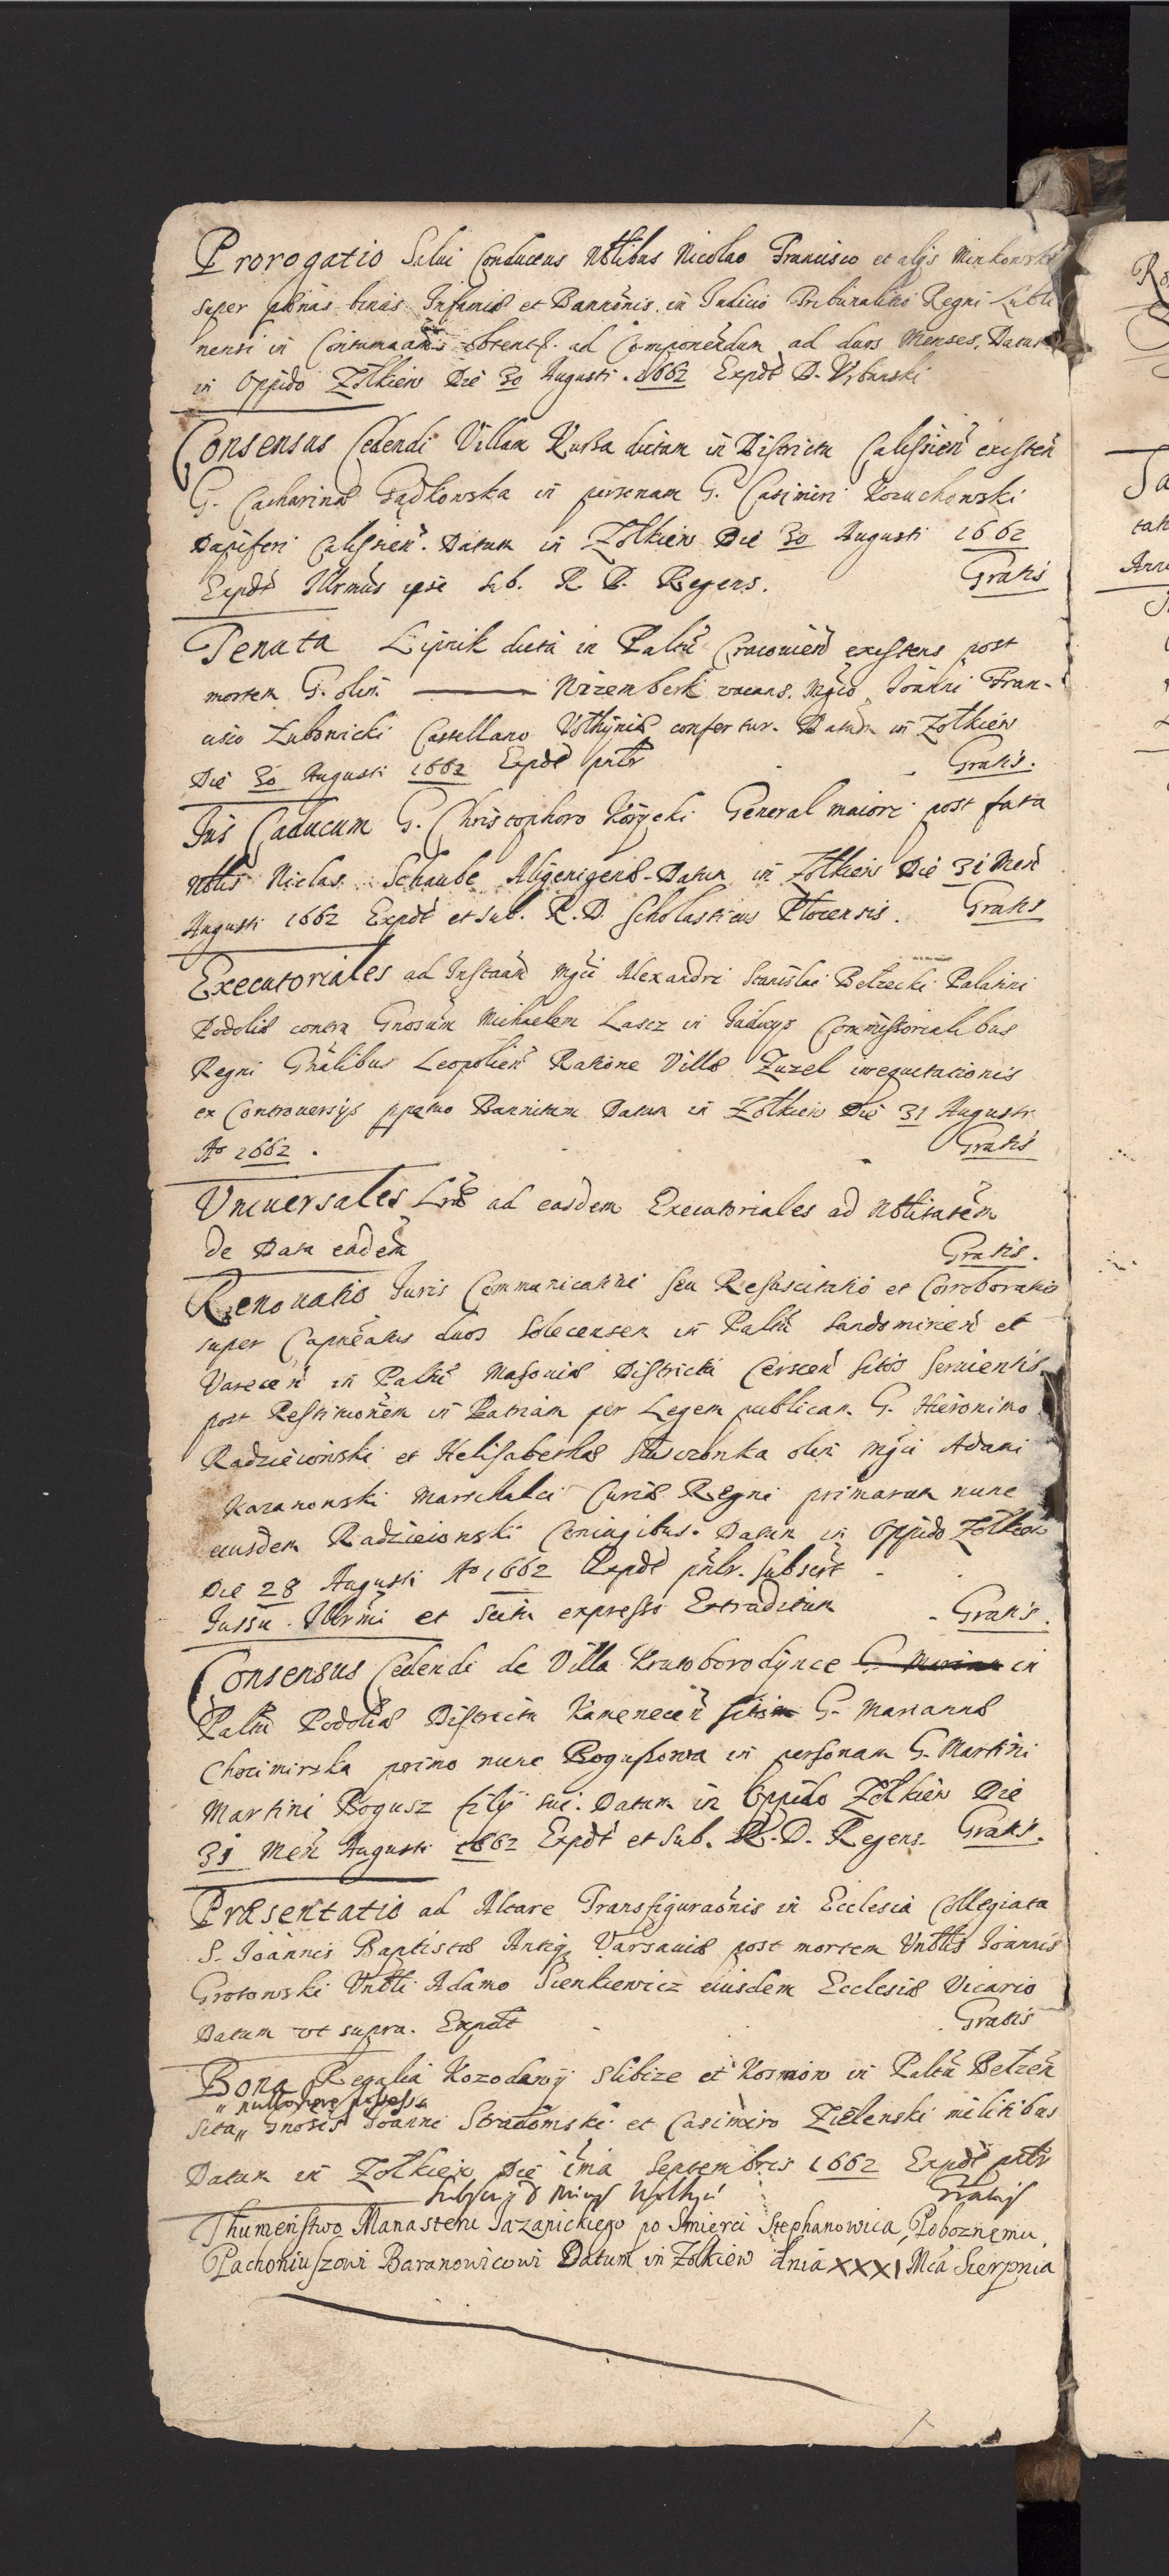 Prorogatio Salui Conductus Nobilibus Nicolao Francisco et alijs Minkowski
super pœnas binas Infamiæ et Bannonis in Iudicio Tribunalitio Regni Lubli
nensi in Contumaciam obtent. ad Componendum ad duos Menses. Datum
in Oppido Zolkiew Die 30 Augusti 1662 Expdt D. Vrbanski
Consensus Cedendi Villam Russa dictam in Districtu Calissien existen
G. Catharinæ Gądkowska in personam G. Casimiri Kozuchowski
Dapiferi Calissien. Datum in Zolkiew Die 30 Augusti 1662
Expdt Illrmus ipse sub. R. D. Regens. Gratis
Tenuta Lipnik dicta in Paltu Cracouien existens post
mortem G. olim ——— Nirzemberk vacans. Mgco Joanni Fran-
cisco Lubonicki Castellano Volhyniæ confertur. Datum in Zolkiew
Die 30 Augusti 1662 Expdt pntr Gratis.
Jus Caducum G. Christophoro Korycki General maiori post fata
Nblis Niclas Schaube Aligenigenæ. Datum in Zolkiew Die 31 Men
Augusti 1662 Expdt et sub. R. D. Scholasticus Plocensis. Gratis
Executoriales ad Instaan Mgci Alexandri Stanislai Belzecki Palatini
Podoliæ contra Gnosum Michaelem Lascz in Judicijs Commissorialibus
Regni Gnalibus Leopolien Ratione Villæ Zuzel inequitationis
ex Controuersijs ppetuo Bannitum Datum in Zolkiew Die 31 Augusti
Ao 1662. Gratis
Vniuersales Lræ ad easdem Executoriales ad Nblitatem
de Data eadem Gratis.
Renouatio Iuris Communicatiui seu Resuscitatio et Corroboratio
super Capneatus duos Solecensem in Paltu Sandomirien et
Varecen in Paltu Masouiæ Districtu Cerscen sitos seruientis
post Restitutionem in Patriam per Legem publicam G. Hieronimo
Radzieiowski et Helisabethæ Sluszczonka olim Mgci Adami
Kazanowski Marschalci Curiæ Regni primarum nunc
eiusdem Radzieiowski Coniugibus. Datum in Oppido Zolkiew
Die 28 Augusti Ao 1662 Expdt pntr. subscrt
Jussu Illrmi et scitu expresso Extraditum Gratis.
Consensus Cedendi de Villa Krutoborodynce in
Paltu Podoliæ Districtu Kamenecen G. Mariannæ
Chocimirska primo nunc Bogussowa in personam G. Martini
Martini Bogusz filij sui. Datum in Oppido Zolkiew Die
31 Men Augusti 1662 Expdt et sub. R. D. Regens. Gratis.
Præsentatio ad Altare Transfiguraonis in Ecclesia Collegiata
S. Joannis Baptistæ Antiq. Varsauiæ post mortem Vnblis Joannis
Grotowski Vnbli Adamo Sienkiewicz eiusdem Ecclesiæ Vicario
Datum vt supra. Expdt Gratis
Bona Regalia Kozodawy Slibize et Kosmow in Paltu Belzen
" nullo iure possessa
sita " Gnosis Joanni Stradomski et Casimiro Zielenski militibus
Datum in Zolkiew Die ima Septembris 1662 Expdt pntr
Gratis
Ihumeństwo Manasteru Jazanickiego po Smierci Stephanowica, Poboznemu
Pachoniuszowi Baranowicowi Datum in Zolkiew dnia XXXI Mca Sierpnia